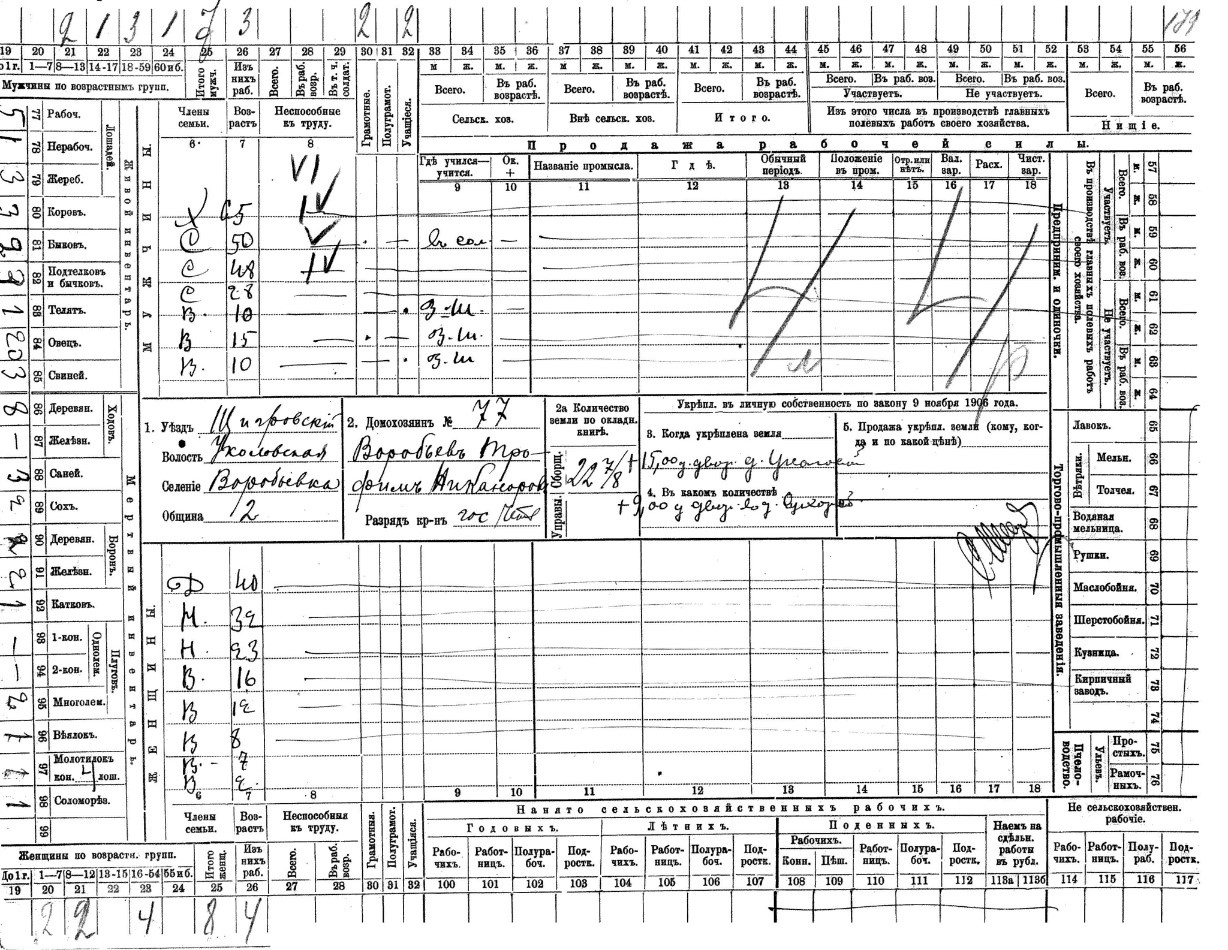 2 1 3 1 7 3 2 2
179
19 20 21 22 23 24 25 26 27 28 29 30 31 32 33 34 35 36 37 38 39 40 41 42 43 44 45 46 47 48 49 50 51 52 53 54 55 56
до 1 г. 1—7 8—13 14-17 18-59 60 иб. Итого мужч. Изъ них раб. Всего. Въ раб. возр. Въ т. ч. солдат. Грамотные. Полуграмот. Учащіеся.
м ж. м. ж. м ж. м. ж. м. ж. м. ж. м. ж. м. ж. м. ж. м. ж. м. ж. м. ж.
Мужчины по возрастнымъ групп.
Всего. Въ раб. возрастѣ. Всего. Въ раб. возрастѣ. Всего. Въ раб. возрастѣ.
Всего. Въ раб. воз. Всего. Въ раб. воз.
Участвуетъ. Не участвуетъ.
Всего. Въ раб. возрастѣ.
Сельск. хоз. Внѣ сельск. хоз. Итого.
Изъ этого числа въ производствѣ главныхъ полевыхъ работъ своего хозяйства.
Нищіе.
Члены семьи. Возрастъ Неспособные къ труду.
6. 7 8
Продажа рабочей силы.
Гдѣ учился—учится. Ок. + Названіе промысла. Гдѣ. Обычный періодъ. Положеніе въ пром. Отр. или нѣтъ. Вал. зар. Расх. Чист. зар.
9 10 11 12 13 14 15 16 17 18
МУЖЧИНЫ
VI
Х 65 IV
С 50 V — въ сол. —
С 48 IV
С 28
В. 10 з. ш. —
В 15 з. ш.
В. 10 з. ш.
Живой инвентарь.
Лошадей.
77 Рабоч. 5
78 Нерабоч. 1
79 Жереб. 3
80 Коровъ. 3
81 Быковъ.
82 Подтелковъ и бычковъ.
83 Телятъ. 1
84 Овецъ. 20
85 Свиней. 3
Мертвый инвентарь.
86 Деревян. Ходовъ. 8
87 Желѣзн. —
88 Саней. 3
89 Сохъ. 2
90 Деревян. Боронъ. 2
91 Желѣзн. 2
92 Катковъ. 1
93 1-кон. Одноле́м. Плуговъ. —
94 2-кон. —
95 Многолем. 2
96 Вѣялокъ. 1
97 Молотилокъ кон. 4 лош. 1
98 Соломорѣз. 1
99
1. Уѣздъ Щигровскій
Волость Уколовская
Селеніе Воробьевка
Община 2
2. Домохозяинъ № 77
Воробьевъ Трофимъ Никаноров
Разрядъ кр-нъ гос чет
2а Количество земли по окладн. книгѣ.
Сборщ. 22 7/8
Управы.
Укрѣпл. въ личную собственность по закону 9 ноября 1906 года.
3. Когда укрѣплена земля
+15,00 у двор. д.
4. Въ какомъ количествѣ
+9,00 у двор.
5. Продажа укрѣпл. земли (кому, когда и по какой цѣнѣ)
ЖЕНЩИНЫ
Д 40
Н. 32
Н. 23
В. 16
В 12
В 8
В. 7
В 2
6 7 8 9 10 11 12 13 14 15 16 17 18
Предприним. и одиночки.
Въ производствѣ главныхъ полевыхъ работъ своего хозяйства.
Участвуетъ. Не участвуетъ.
Всего. Въ раб. воз. Всего. Въ раб. воз.
м. ж. м. ж. м. ж. м. ж.
57 58 59 60 61 62 63 64
Торгово-промышленныя заведенія.
Лавокъ. 65
Вѣтрянки.
Мельн. 66
Толчея. 67
Водяная мельница. 68
Рушки. 69
Маслобойня. 70
Шерстобойня. 71
Кузница. 72
Кирпичный заводъ. 73
74
Пчеловодство.
Ульевъ.
Простыхъ. 75
Рамочныхъ. 76
Члены семьи. Возрастъ Неспособныя къ труду. Грамотныя. Полуграмот. Учащіяся.
Нанято сельскохозяйственныхъ рабочихъ.
Годовыхъ. Лѣтнихъ. Поденныхъ.
Наемъ на сдѣльн. работы въ рубл.
Не сельскохозяйствен. рабочіе.
Женщины по возрастн. групп.
Рабочихъ. Работницъ. Полурабоч. Подростк. Рабочихъ. Работницъ. Полурабоч. Подростк. Рабочихъ. Конн. Пѣш. Работницъ. Полурабоч. Подростк. Рабочихъ. Работницъ. Полураб. Подростк.
До 1 г. 1—7 8—12 13-15 16-54 55 иб. Итого женщ. Изъ них раб. Всего. Въ раб. возр.
19 20 21 22 23 24 25 26 27 28 30 31 32 100 101 102 103 104 105 106 107 108 109 110 111 112 113а 113б 114 115 116 117
2 2 4 8 4